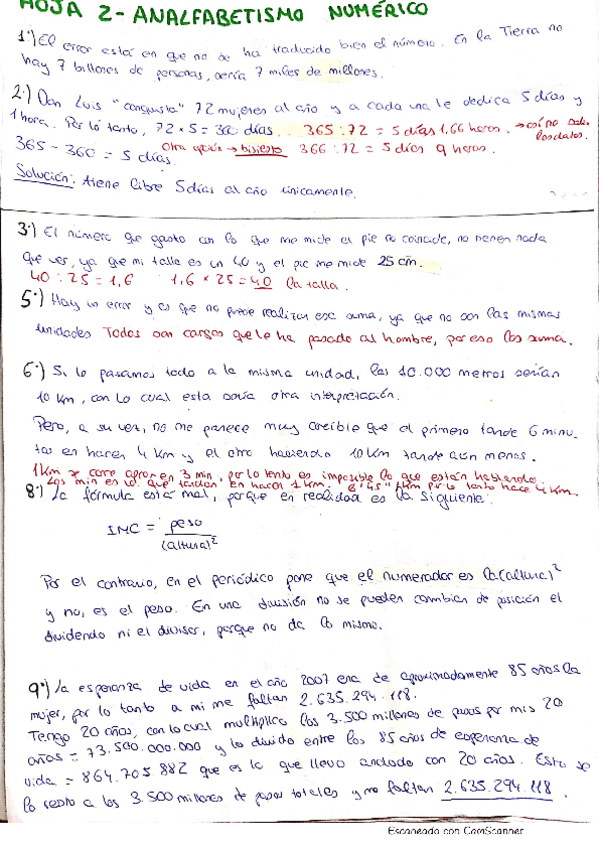 HOJA 2 - ANALFABETISMO NUMÉRICO
1º) El error está en que no se ha traducido bien el número. En la Tierra no
hay 7 billones de personas, sería 7 miles de millones.
2º) Don Luis "conquista" 72 mujeres al año y a cada una le dedica 5 días y
1 hora. Por lo tanto, 72 x 5 = 360 días. 365 : 72 = 5 días 1,66 horas. → así no
los datos.
365 - 360 = 5 días. Otra opción → bisiesto 366 : 72 = 5 días 9 horas.
Solución: tiene libre 5 días al año únicamente.
3º) El número que gasto con lo que me mide el pie no coincide, no tienen nada
que ver, ya que mi talla es un 40 y el pie me mide 25 cm.
40 : 25 = 1,6 1,6 x 25 = 40 la talla.
5º) Hay un error y es que no puede realizar esa suma, ya que no son las mismas
unidades Todos son cargos que le ha pasado al hombre, por eso los suma.
6º) Si lo pasamos todo a la misma unidad, los 10.000 metros serían
10 km, con lo cual esta sería otra interpretación.
Pero, a su vez, no me parece muy creíble que el primero tarde 6 minu
tos en hacer 4 km y el otro haciendo 10 km tarde aún menos.
1 km se corre aprox en 3 min, por lo tanto es imposible lo que están hablando.
Los min es lo que tardan en hacer 1 km. por lo tanto hace 4 km.
8º) La fórmula está mal, porque en realidad es la siguiente:
IMC = peso
(altura)²
Por el contrario, en el periódico pone que el numerador es la (altura)²
y no, es el peso. En una división no se pueden cambiar de posición el
dividendo ni el divisor, porque no da lo mismo.
9º) La esperanza de vida en el año 2007 era de aproximadamente 85 años la
mujer, por lo tanto a mi me faltan 2.635.294.118.
Tengo 20 años, con lo cual multiplico los 3.500 millones de pasos por mis 20
años = 73.500.000.000 y lo divido entre los 85 años de esperanza de
vida = 864.705.882 que es lo que llevo andado con 20 años. Esto se
lo resto a los 3.500 millones de pasos totales y me faltan 2.635.294.118.
Escaneado con CamScanner